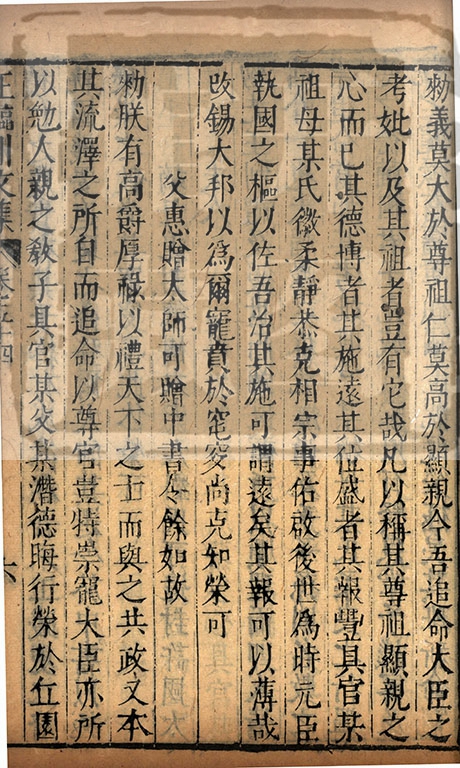 勑義莫大於尊祖仁莫高於顯親今吾追命大臣之
考妣以及其祖者豈有它哉凡以稱其尊祖顯親之
心而已其德博者其施遠其位盛者其報豐具官某
祖母某氏徽柔靜恭克相宗事佑啟後世爲時元臣
執國之樞以佐吾治其施可謂遠矣其報可以薄哉
改錫大邦以爲爾寵賁於窀穸尚克知榮可
父惠贈太師可贈中書令餘如故
勑朕有高爵厚祿以禮天下之士而與之共政又本
其流澤之所自而追命以尊官豈特崇寵大臣亦所
以勉人親之敎子具官某父某潛德晦行榮於丘園
王臨川文集 卷 十四
六